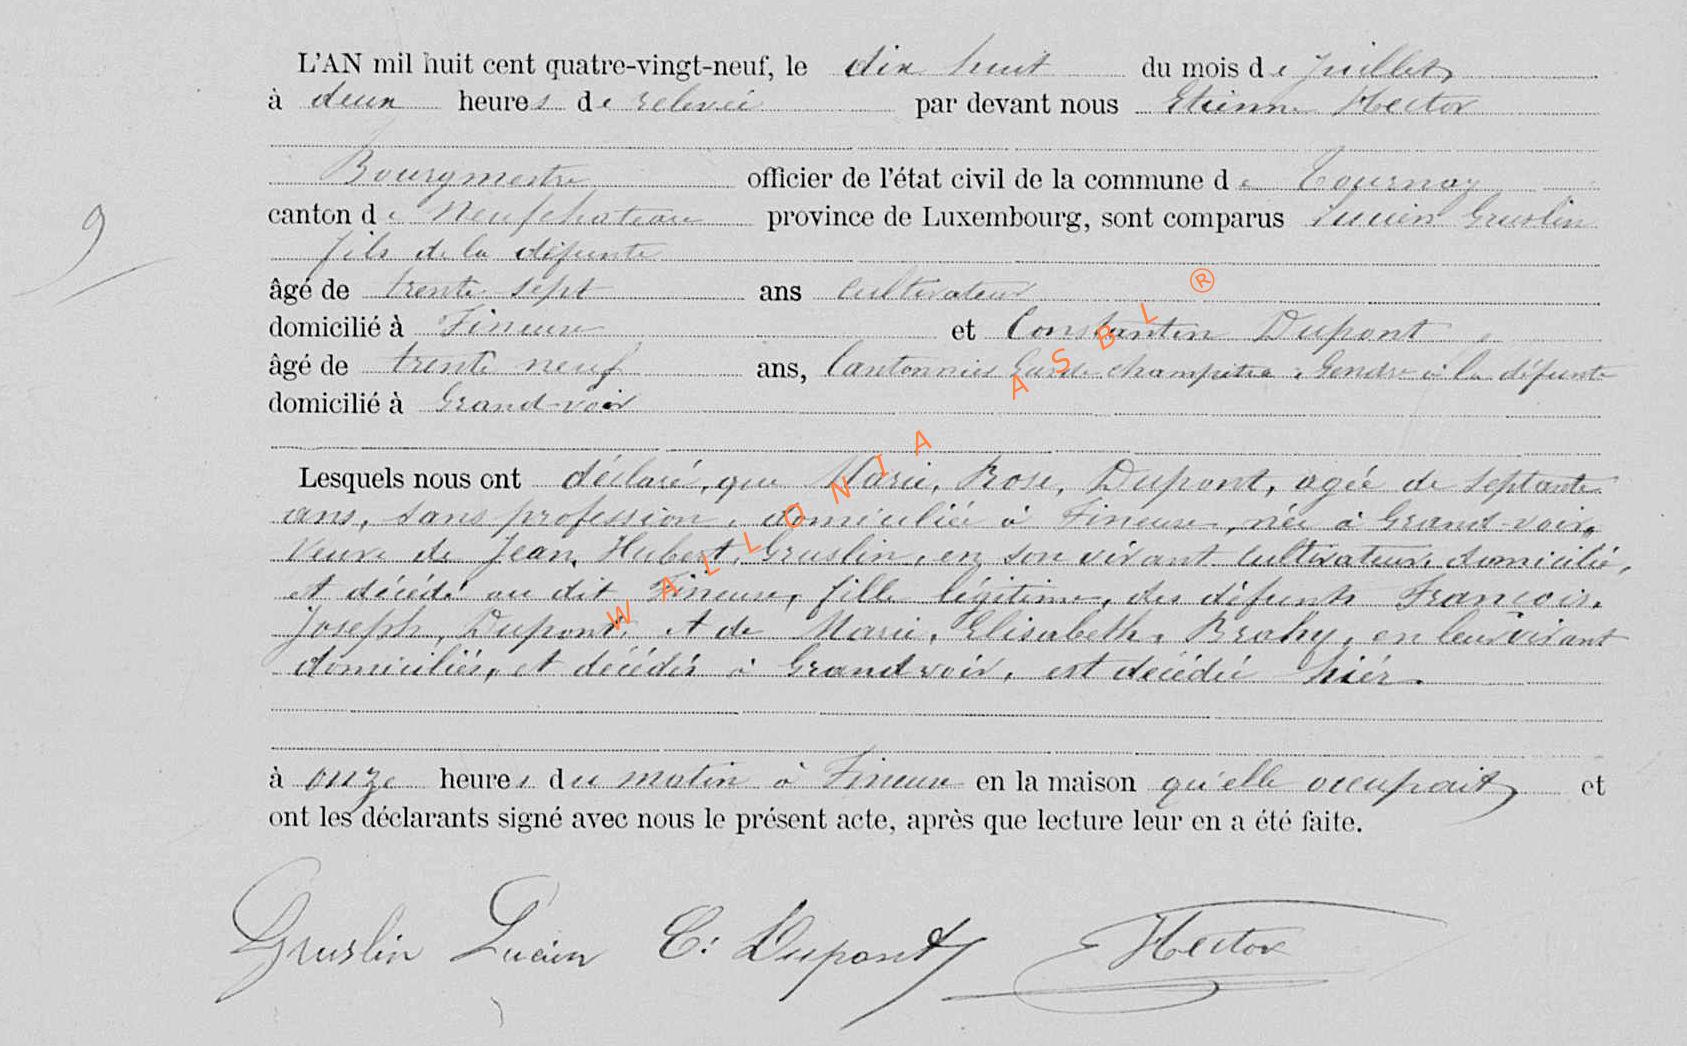 L'AN mil huit cent quatre-vingt-neuf, le dix huit du mois de juillet
à deux heures de relevée par devant nous Etienne Hector
Bourgmestre officier de l'état civil de la commune de Tournay
canton de Neufchateau province de Luxembourg, sont comparus Lucien Gruslin
fils de la défunte
âgé de trente sept ans cultivateur
domicilié à Fineuse et Constantin Dupont
âgé de trente neuf ans, Cantonnier Garde champêtre, Gendre à la défunte
domicilié à Grand-voir
9
Lesquels nous ont déclaré, que Marie, Rose, Dupont, agée de septante
ans, sans profession, domiciliée à Fineuse, née à Grand-voir,
Veuve de Jean, Hubert, Gruslin, en son vivant cultivateur, domicilié,
et décédé au dit Fineuse, fille légitime, des défunts François,
Joseph, Dupont, et de Marie, Elisabeth, Brahy, en leur vivant
domiciliés, et décédés à Grandvoir, est décédée hiér.
à onze heures du matin à Fineuse en la maison qu'elle occupait et
ont les déclarants signé avec nous le présent acte, après que lecture leur en a été faite.
Gruslin Lucien C: Dupont Hector
WALLONIA ASBL ®